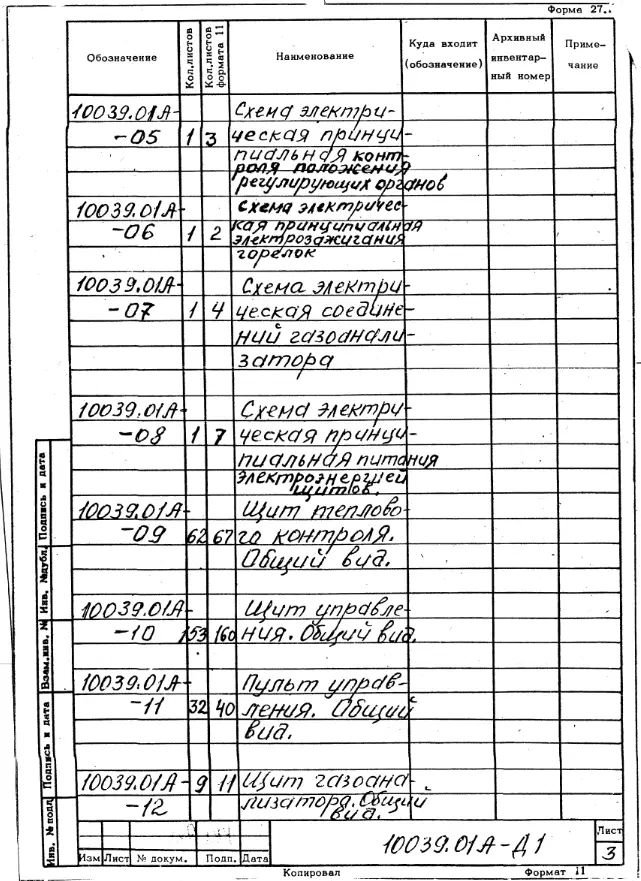 Форма 27..
Обозначение
Кол.листов
Кол.листов формата 11
Наименование
Куда входит (обозначение)
Архивный инвентар- ный номер
Приме- чание
10039.01А- Схема электри-
-05 1 3 ческая принци-
пиальная конт-
роля положения
регулирующих органов
10039.01А- Схема электричес-
-06 1 2 кая принципиальная
электрозажигания
горелок
10039.01А- Схема электри-
-07 1 4 ческая соедине-
ний газоанали-
затора
10039.01А- Схема электри-
-08 1 7 ческая принци-
пиальная питания
электроэнергией
щитов.
10039.01А- Щит теплово-
-09 62 67 го контроля.
Общий вид.
10039.01А- Щит управле-
-10 153 160 ния. Общий вид.
10039.01А- Пульт управ-
-11 32 40 ления. Общий
вид.
10039.01А- 9 11 Щит газоана-
-12 лизатора. Общий
вид.
Подпись и дата
Инв. №дубл.
Взам.инв. №
Подпись и дата
Инв. №подл
Изм Лист № докум. Подп. Дата
10039.01А-Д1
Лист
3
Копировал Формат 11